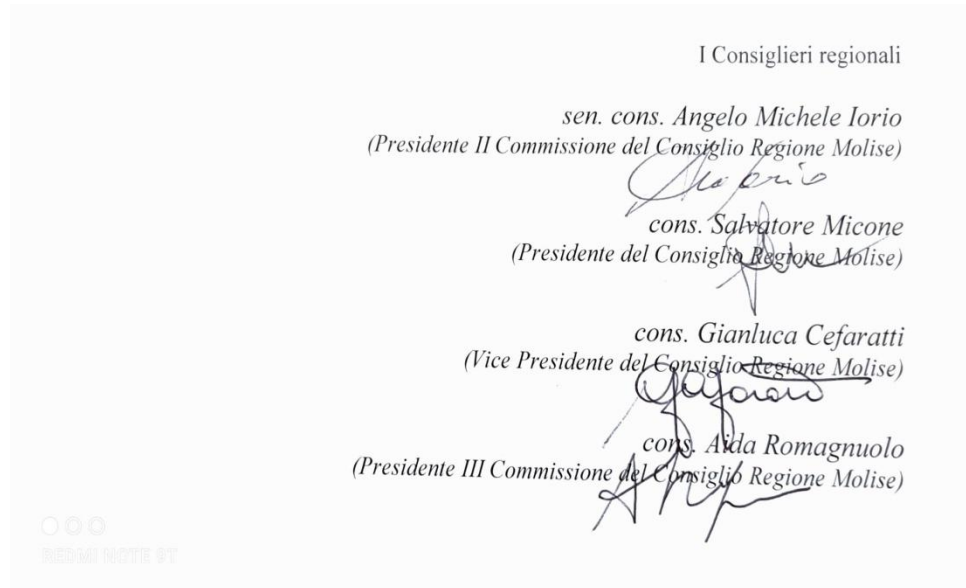 I Consiglieri regionali
sen. cons. Angelo Michele Iorio
(Presidente II Commissione del Consiglio Regione Molise)
cons. Salvatore Micone
(Presidente del Consiglio Regione Molise)
cons. Gianluca Cefaratti
(Vice Presidente del Consiglio Regione Molise)
cons. Aida Romagnuolo
(Presidente III Commissione del Consiglio Regione Molise)
REDMI NOTE 8T